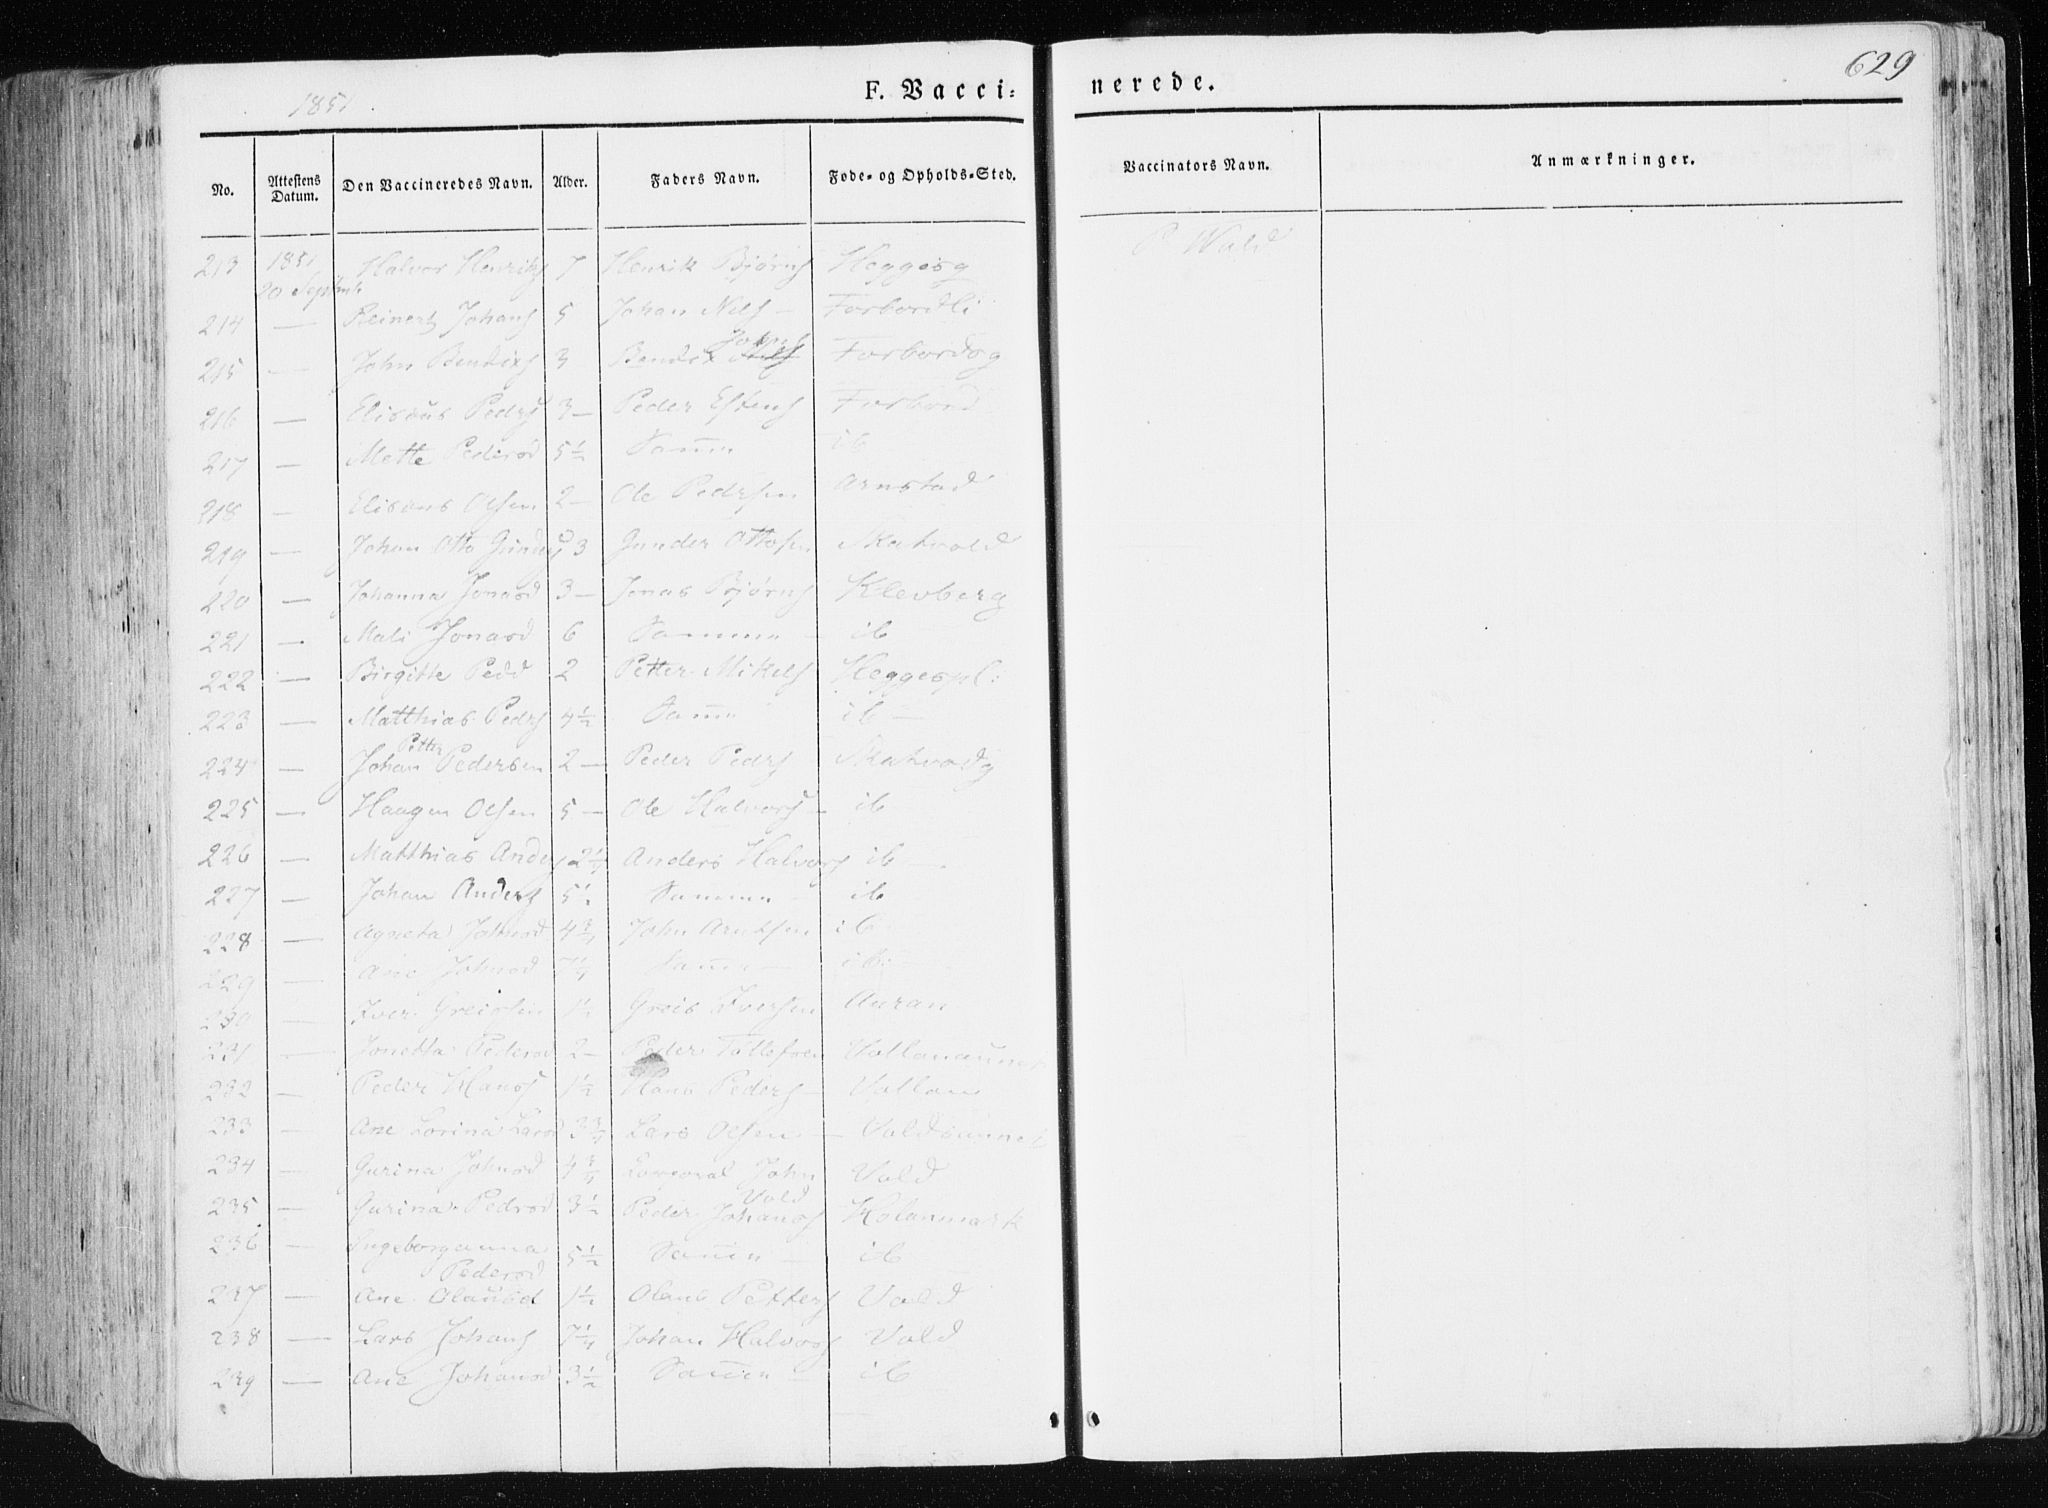 1851 F. Vacci= nerede. 629
No. Attestens Datum. Den Vaccineredes Navn. Alder. Faders Navn. Føde- og Opholds-Sted. Vaccinators Navn. Anmærkninger.
213 1851 20 Septembr Halvor Henriks 7 Henrik Bjørns Heggesg P Wald
214 — Reinert Johans 5 Johan Nils — Forbordli
215 — John Bendixs 3 Bendix Johns Forbordsg
216 — Elisæus Peders 3 — Peder Estens Forbord
217 — Mette Pedersd 5½ Samme ib
218 — Elisæus Olsen 2 — Ole Pedersen Arnstad
219 — Johan Otto Gunders 3 Gunder Ottosen Skatvold
220 — Johanna Jonasd 3 — Jonas Bjørns Klevberg
221 — Mali Jonasd 6 Samme — ib
222 — Birgitte Pedd 2 Petter Mikels Heggespl:
223 — Matthias Peders 4½ Samme ib —
224 — Johan Petter Pedersen 2 — Peder Peders Skatvoldg
225 — Haagen Olsen 5 — Ole Halvors — ib
226 — Matthias Anders 2¼ Anders Halvors ib
227 — Johan Anders 5½ Samme — ib
228 — Agneta Johnsd 4¾ John Arntsen ib
229 — Ane Johnsd 7¼ Samme — ib
230 — Iver Greisen 1½ Greis Iversen Auran
231 — Jonetta Pedersd 2 — Peder Tollefsen Vollanaunet
232 — Peder Hans 1½ Hans Peders — Vollan
233 — Ane Lorina Larsd 3¾ Lars Olsen — Valdsaunet
234 — Gurina Johnsd 4¾ Corporal John Vold Vald
235 — Gurina Pedersd 3½ Peder Johans Holanmark
236 — Ingeborganna Pedersd 5½ Samme — ib
237 — Ane Olausd 1½ Olaus Petters Vald
238 — Lars Johans 7¼ Johan Halvors Vald
239 — Ane Johansd 3½ Samme — ib